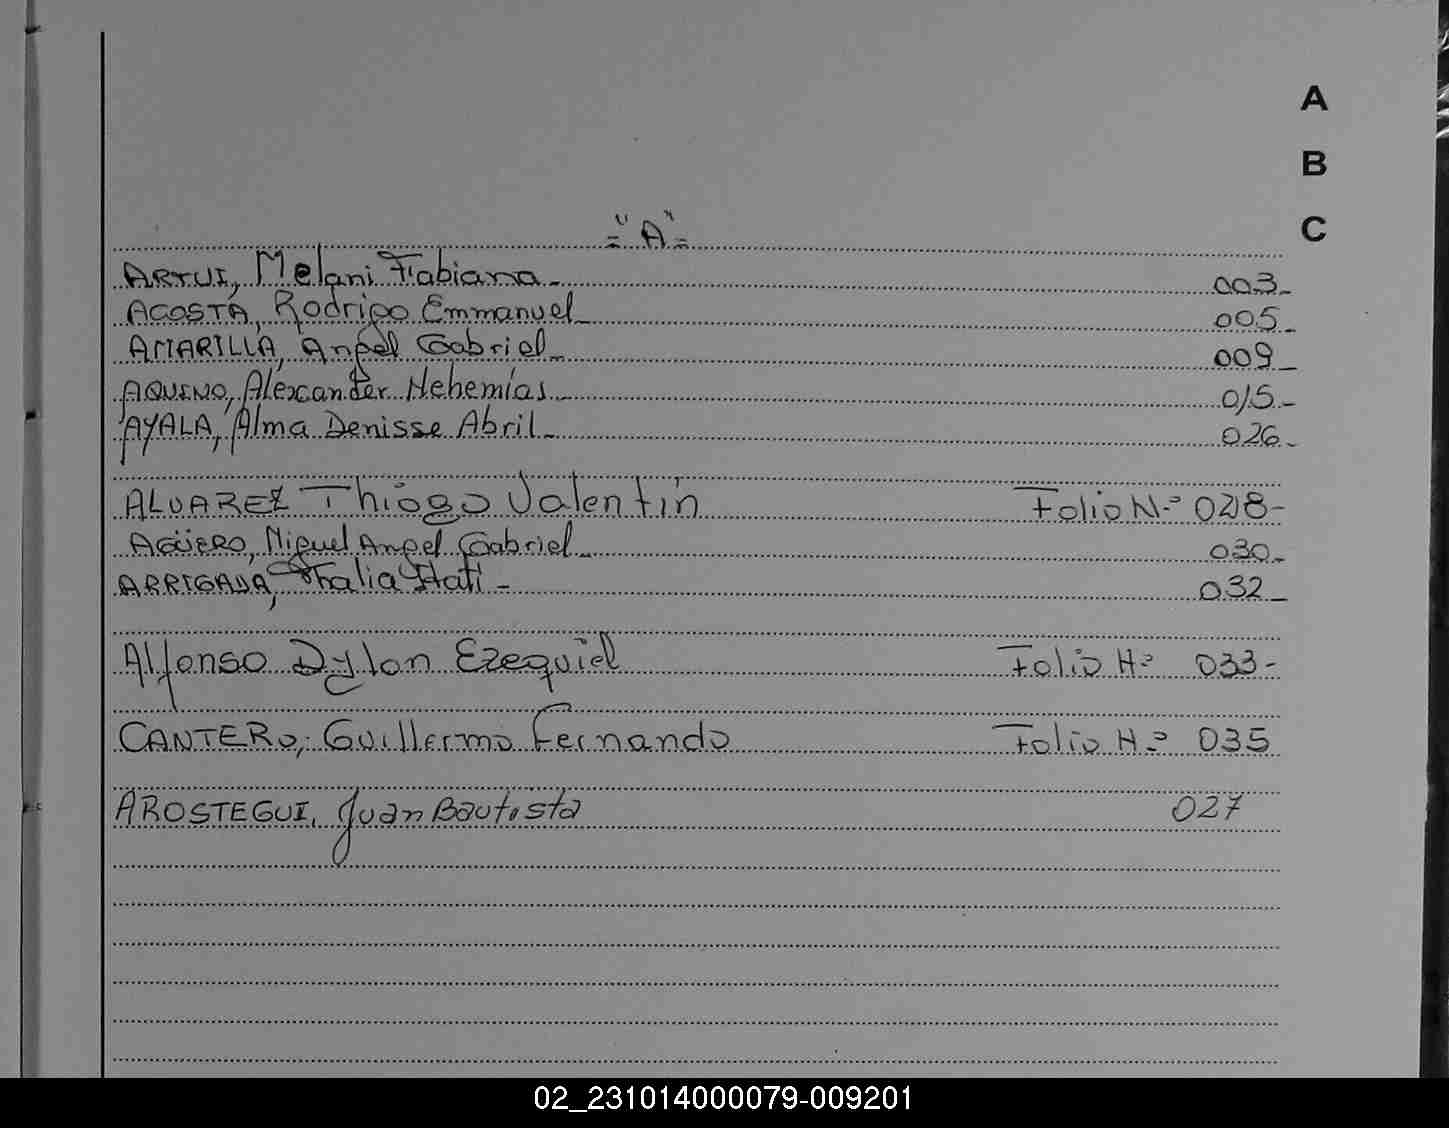 A
B
C
="A"=
ARTUI, Melani Fabiana - 003-
ACOSTA, Rodrigo Emmanuel - 005-
AMARILLA, Angel Gabriel - 009-
AQUINO, Alexcander Nehemías - 015-
AYALA, Alma Denisse Abril - 026-
ALVAREZ Thiago Valentín Folio Nº 028-
AGÜERO, Miguel Angel Gabriel - 030-
ARRIGADA, Thalia - 032-
Alfonso Dylan Ezequiel Folio Nº 033-
CANTERO, Guillermo Fernando Folio Nº 035
AROSTEGUI, Juan Bautista 027
02_231014000079-009201